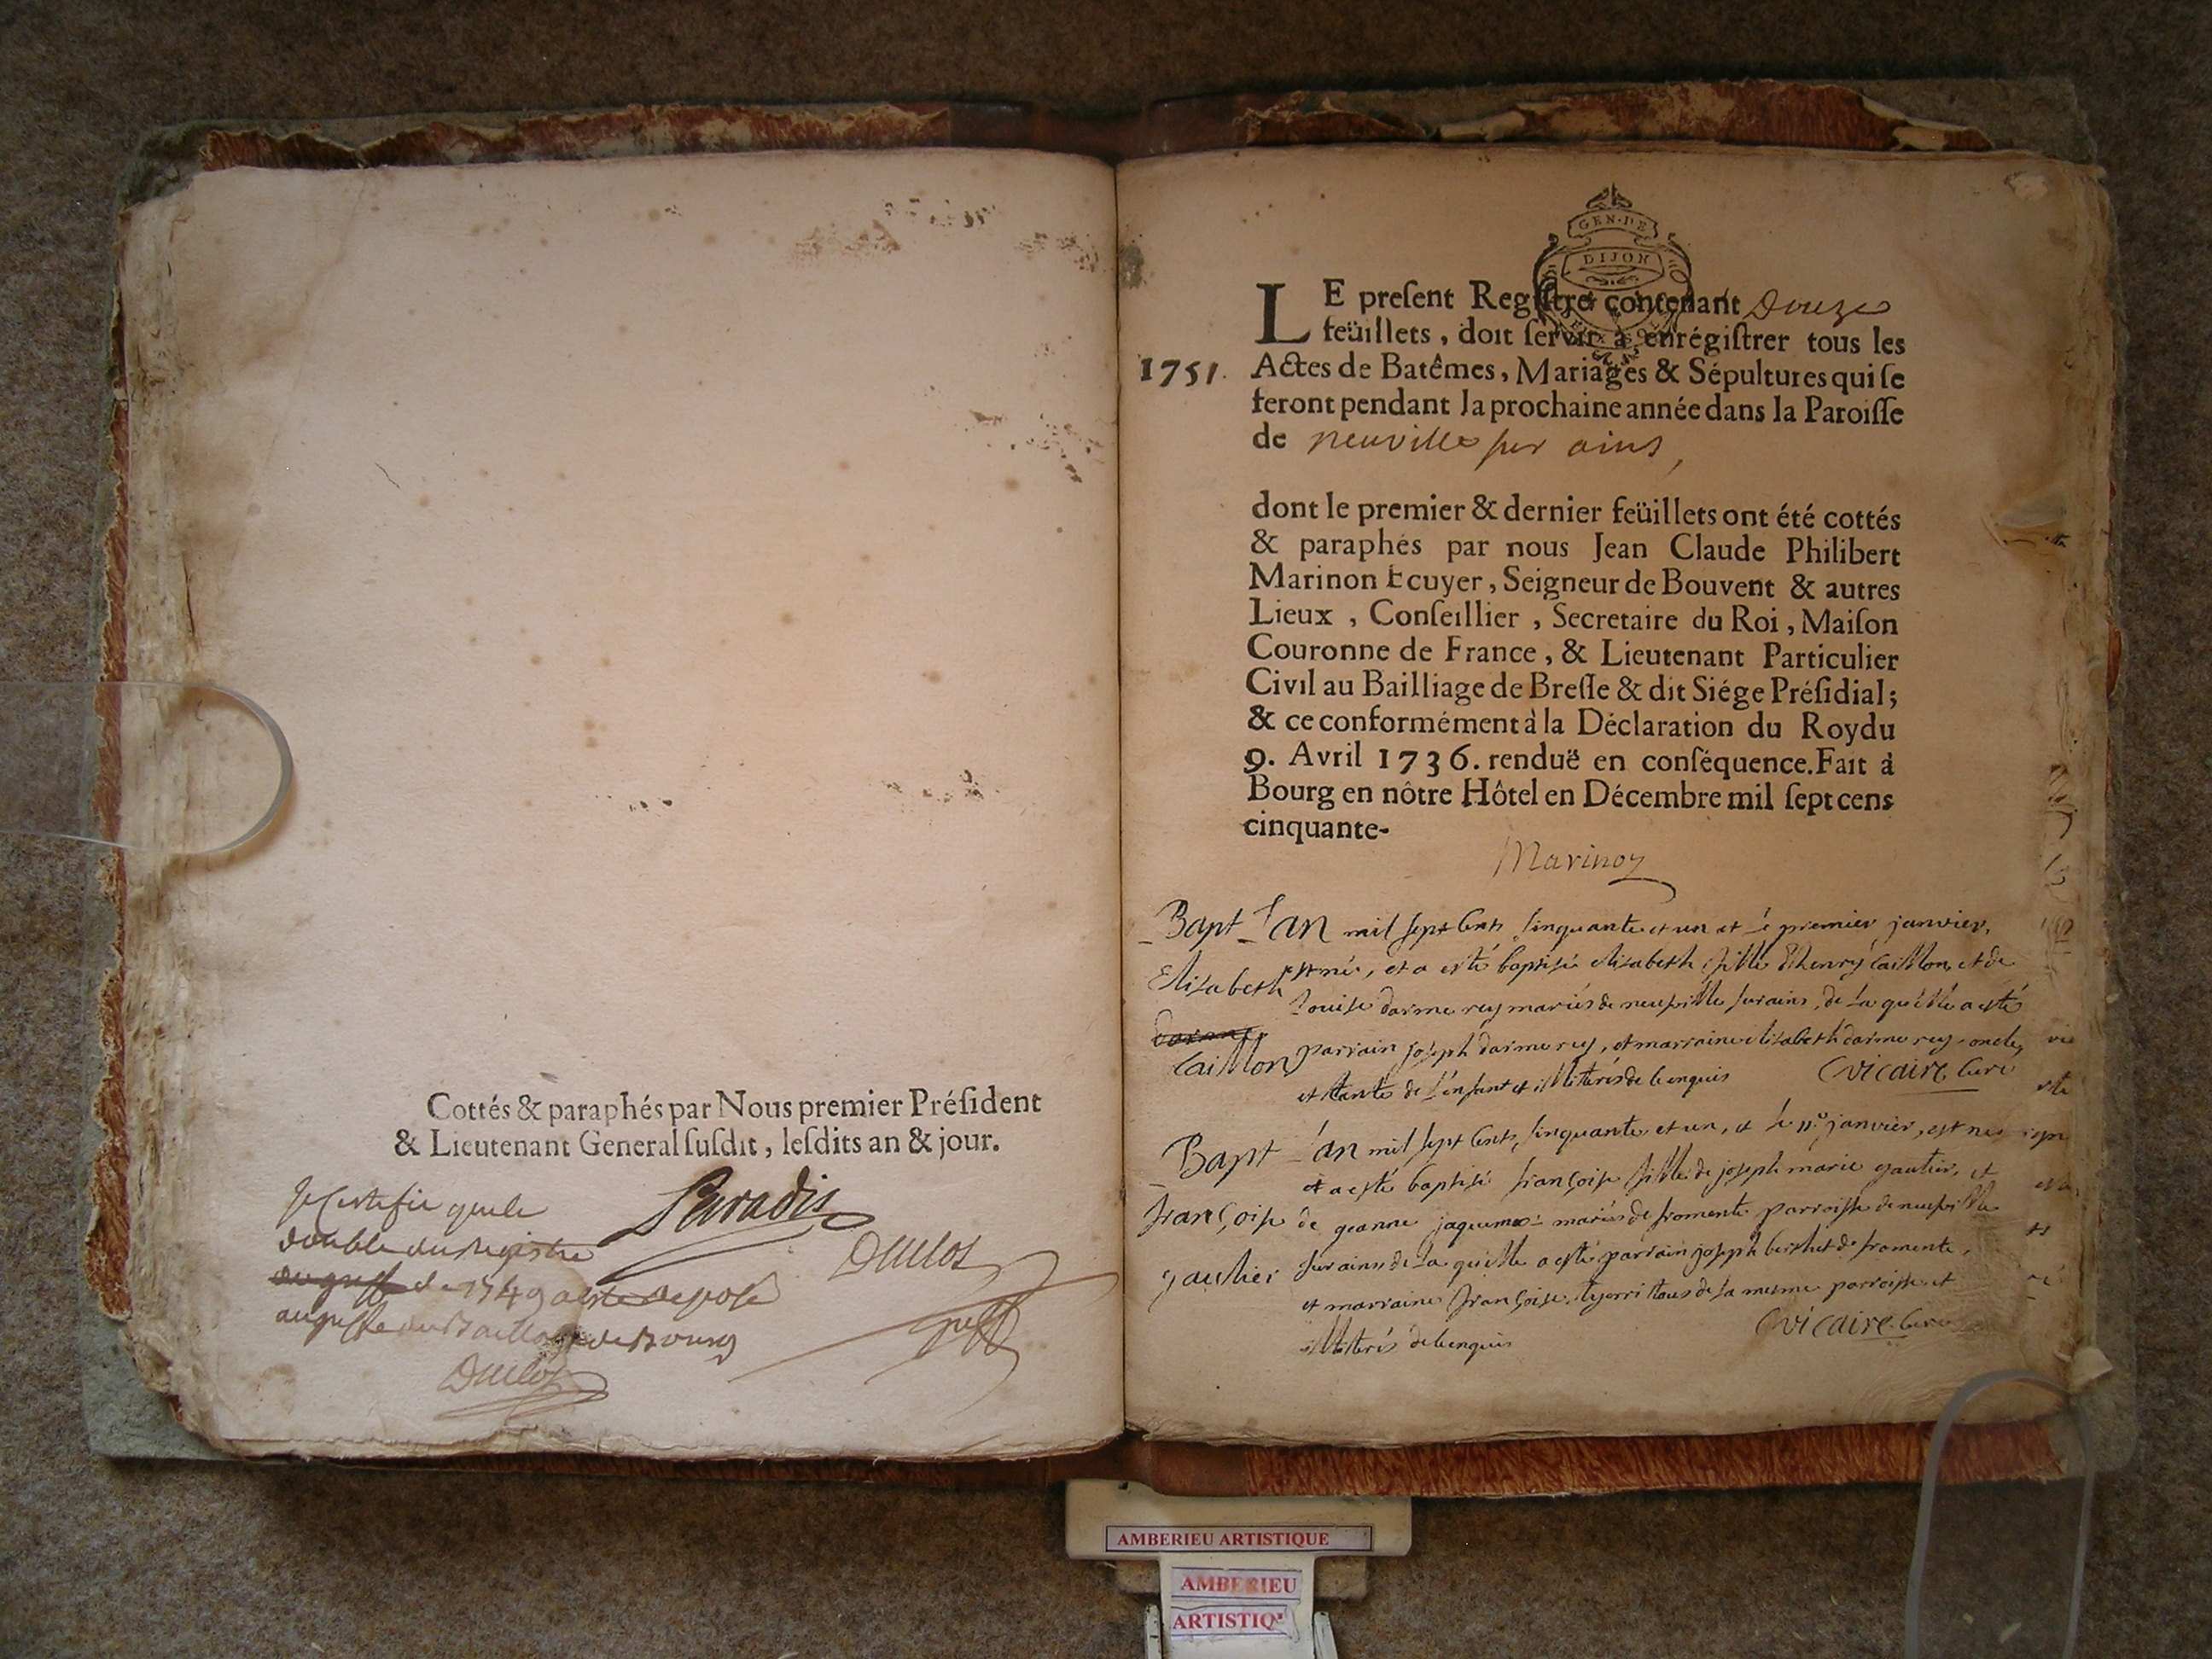 Cottés & paraphés par Nous premier Préſident
& Lieutenant General ſuſdit, leſdits an & jour.
Je Certifie que le
double du Registre
au greffe de 1749 a esté deposé
au greffe du Baillage de Bourg
Paradis
Duclos
Duclos
GEN. DE
DIJON
LE preſent Regiſtre contenant Douze
feüillets, doit ſervir à enrégiſtrer tous les
1751. Actes de Batêmes, Mariages & Sépultures qui ſe
feront pendant la prochaine année dans la Paroiſſe
de neuville sur ains,
dont le premier & dernier feüillets ont été cottés
& paraphés par nous Jean Claude Philibert
Marinon Ecuyer, Seigneur de Bouvent & autres
Lieux, Conſeillier, Secretaire du Roi, Maiſon
Couronne de France, & Lieutenant Particulier
Civil au Bailliage de Breſſe & dit Siége Préſidial;
& ce conformément à la Déclaration du Roy du
9. Avril 1736. renduë en conſéquence. Fait à
Bourg en nôtre Hôtel en Décembre mil ſept cens
cinquante-
Marinon
Bapt L'an mil sept cents cinquante et un et le premier janvier,
Elisabeth est née, et a esté baptisée elisabeth fille d'henry Caillon et de
Louise darmerey mariés de neufville sur ains, de laquelle a esté
Caillon parrain joseph darmerey, et marraine elisabeth darmerey oncle,
et tante de l'enfant et illiterés de ce enquis Vicaire Curé
Bapt L'an mil sept cents cinquante et un, et le 11e janvier, est née
et a esté baptisée françoise fille de joseph marie gautier, et
françoise de jeanne jaqueme mariés de fromente parroisse de neufville
gautier sur ains de laquelle a esté parrain joseph berthet de fromente,
et marraine françoise tous de la mesme parroisse et
illiterés de ce enquis Vicaire Curé
AMBERIEU ARTISTIQUE
AMBERIEU
ARTISTIQ